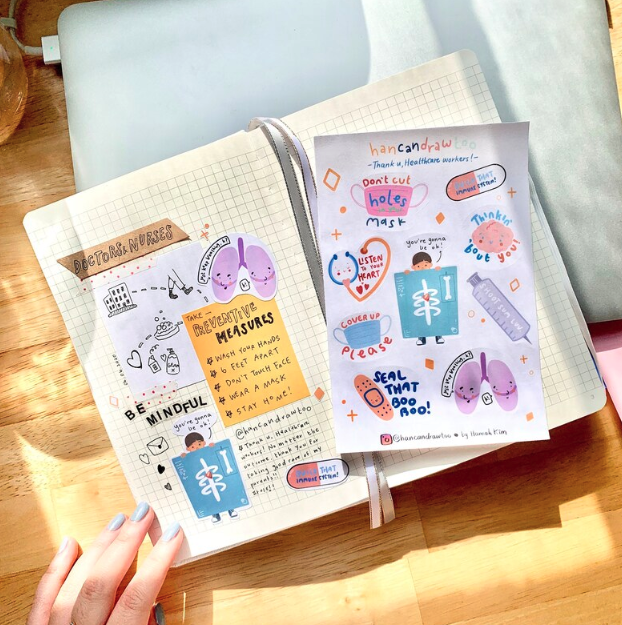 DOCTORS & NURSES
TAKE
PREVENTIVE
MEASURES
WASH YOUR HANDS
6 FEET APART
DON'T TOUCH FACE
WEAR A MASK
STAY HOME!
BE MINDFUL
you're gonna
be ok!
@hancandrawtoo
Thank u, Healthcare
workers! No matter the
outcome, thank you for
taking good care of my
parents!!
THAT
IMMUNE SYSTEM!
hancandrawtoo
-Thank u, Healthcare workers!-
Don't cut
holes
mask
THAT
IMMUNE SYSTEM!
Thinkin'
'bout you!
LISTEN
TO YOUR
HEART
you're gonna
be ok!
COVER UP
Please
SEAL
THAT
BOO
BOO!
@hancandrawtoo by Hannah Kim